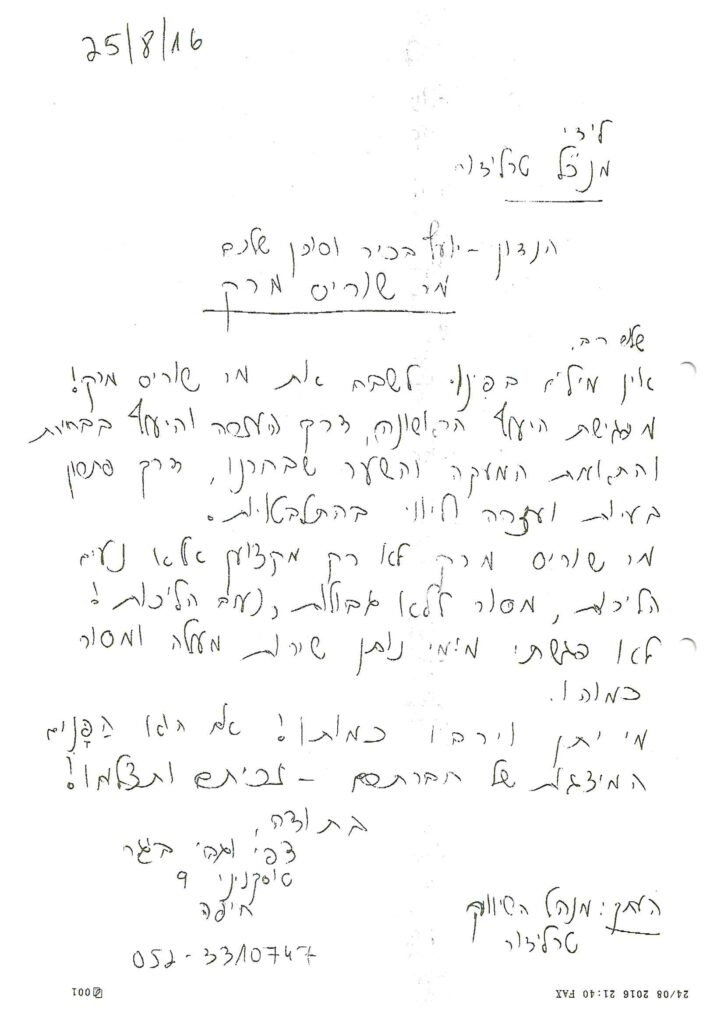 25/8/16
לידי
מנכ"ל טרלידור
הנדון - יועץ בכיר וסוכן שלכם
מר שוריס מרק
שלום רב,
אין מילים בפינו לשבח את מר שוריס מרק!
מפגישת היעוץ הראשונה, דרך העסקה והיעוץ בבחירת
והתאמת המעקה והשער שבחרנו, דרך פתרון
בעיות ועזרה וליווי בהתלבטויות.
מר שוריס מרק לא רק מקצוען אלא נעים
הליכות, מסור ללא גבולות, הליכות!
לא פגשתי מימי נותן שירות מעלה ומסור
כמוהו.
מי יתן וירבו כמותו! אם הוא הַפָּנִים
המיצגות של חברתכם - זכיתם ותצלחו!
בתודה,
צפי
טוסקניני 9
חיפה
052-3310747
העתק: מנהל השיווק
טרלידור
24/08 2016 21:40 FAX
001